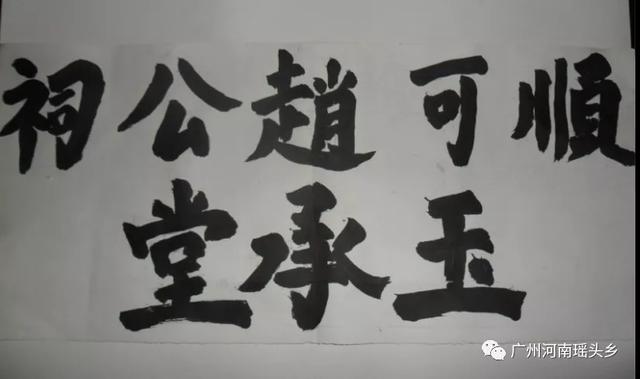 順可趙公祠
玉承堂
广州河南瑶头乡